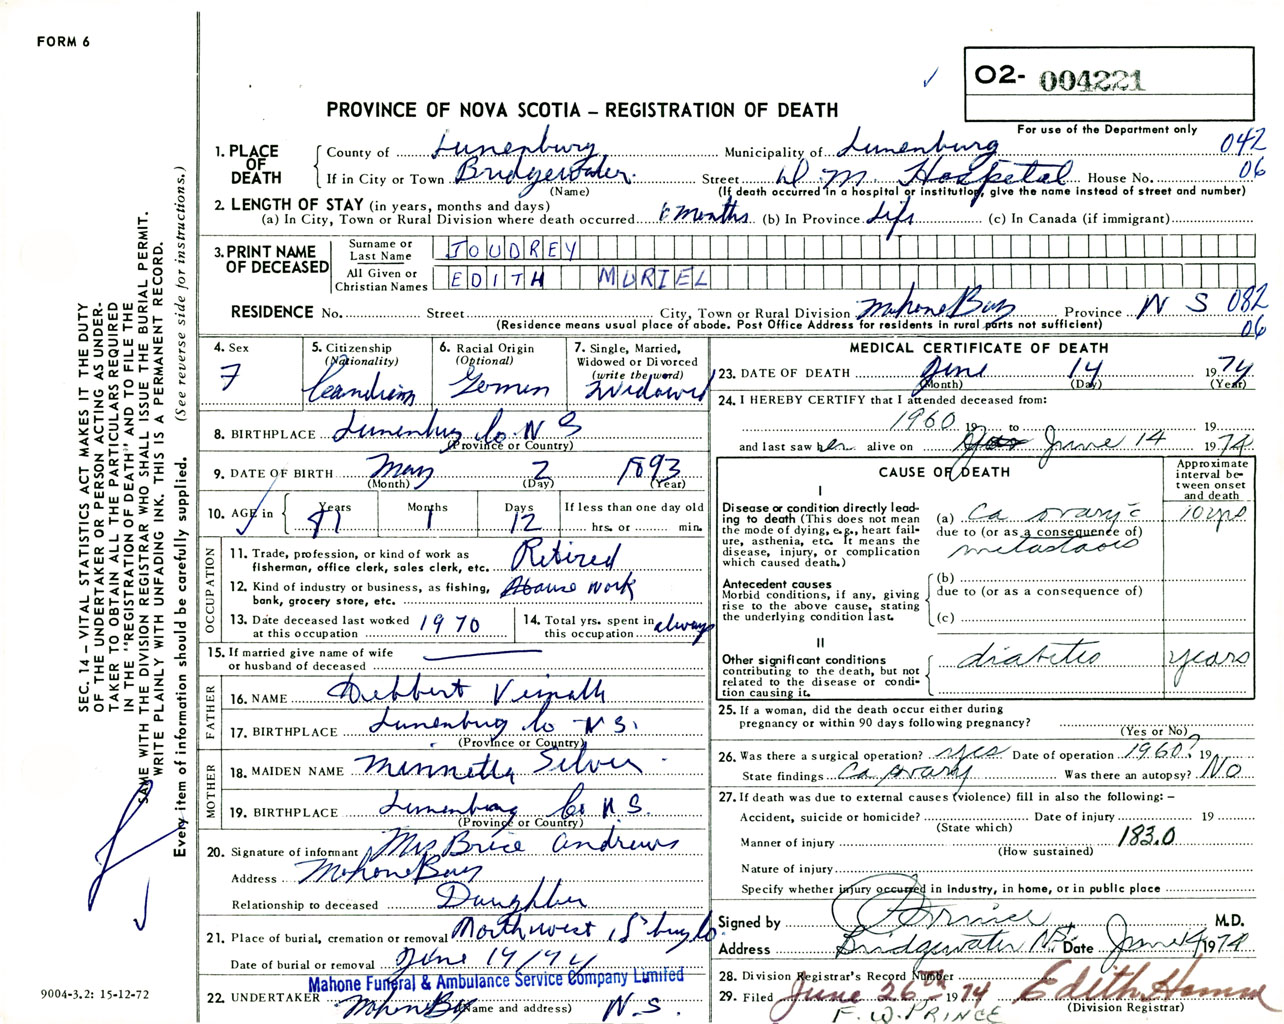 FORM 6
O2- 004221
PROVINCE OF NOVA SCOTIA – REGISTRATION OF DEATH
For use of the Department only
1. PLACE OF DEATH
County of Lunenburg Municipality of Lunenburg 042
If in City or Town Bridgewater. Street D M Hospital House No. 06
(Name) (If death occurred in a hospital or institution, give the name instead of street and number)
2. LENGTH OF STAY (in years, months and days)
(a) In City, Town or Rural Division where death occurred 6 months (b) In Province Life (c) In Canada (if immigrant)
3. PRINT NAME OF DECEASED
Surname or Last Name JOUDREY
All Given or Christian Names EDITH MURIEL
RESIDENCE No. Street City, Town or Rural Division Mahone Bay Province N S 082
(Residence means usual place of abode. Post Office Address for residents in rural parts not sufficient) 06
4. Sex F
5. Citizenship (Nationality) Canadian
6. Racial Origin (Optional) German
7. Single, Married, Widowed or Divorced (write the word) Widowed
8. BIRTHPLACE Lunenburg Co N S
(Province or Country)
9. DATE OF BIRTH May 2 1893
(Month) (Day) (Year)
10. AGE in Years 81 Months 1 Days 12 If less than one day old
hrs. or min.
OCCUPATION
11. Trade, profession, or kind of work as
fisherman, office clerk, sales clerk, etc. Retired
12. Kind of industry or business, as fishing,
bank, grocery store, etc. House work
13. Date deceased last worked
at this occupation 1970
14. Total yrs. spent in
this occupation always
15. If married give name of wife
or husband of deceased
FATHER
16. NAME
17. BIRTHPLACE Lunenburg Co N S.
(Province or Country)
MOTHER
18. MAIDEN NAME Minnetta Silver
19. BIRTHPLACE Lunenburg Co N.S.
(Province or Country)
20. Signature of informant Mrs Brice Andrews
Address Mahone Bay
Relationship to deceased Daughter
21. Place of burial, cremation or removal Northwest
Date of burial or removal June 17/74
Mahone Funeral & Ambulance Service Company Limited
22. UNDERTAKER Mahone Bay N.S.
(Name and address)
MEDICAL CERTIFICATE OF DEATH
23. DATE OF DEATH June 14 1974
(Month) (Day) (Year)
24. I HEREBY CERTIFY that I attended deceased from:
1960 19 to 19
and last saw her alive on June 14 1974
CAUSE OF DEATH
Approximate interval between onset and death
I
Disease or condition directly leading to death (This does not mean the mode of dying, e.g., heart failure, asthenia, etc. It means the disease, injury, or complication which caused death.)
(a) Ca ovary c̄ 10 yrs
due to (or as a consequence of)
metastasis
Antecedent causes
Morbid conditions, if any, giving rise to the above cause, stating the underlying condition last.
(b)
due to (or as a consequence of)
(c)
II
Other significant conditions contributing to the death, but not related to the disease or condition causing it.
diabetes years
25. If a woman, did the death occur either during
pregnancy or within 90 days following pregnancy?
(Yes or No)
26. Was there a surgical operation? yes Date of operation 1960? 19
State findings Ca ovary Was there an autopsy? No
27. If death was due to external causes (violence) fill in also the following: –
Accident, suicide or homicide? Date of injury 19
(State which)
Manner of injury 183.0
(How sustained)
Nature of injury
Specify whether injury occurred in Industry, in home, or in public place
Signed by Prince M.D.
Address Bridgewater NS. Date June 14 1974
28. Division Registrar's Record Number
29. Filed June 26th 1974 Edith
F. W. PRINCE (Division Registrar)
SEC. 14 – VITAL STATISTICS ACT MAKES IT THE DUTY
OF THE UNDERTAKER OR PERSON ACTING AS UNDER-
TAKER TO OBTAIN ALL THE PARTICULARS REQUIRED
IN THE "REGISTRATION OF DEATH" AND TO FILE THE
SAME WITH THE DIVISION REGISTRAR WHO SHALL ISSUE THE BURIAL PERMIT.
WRITE PLAINLY WITH UNFADING INK. THIS IS A PERMANENT RECORD.
Every item of information should be carefully supplied. (See reverse side for instructions.)
9004-3.2: 15-12-72